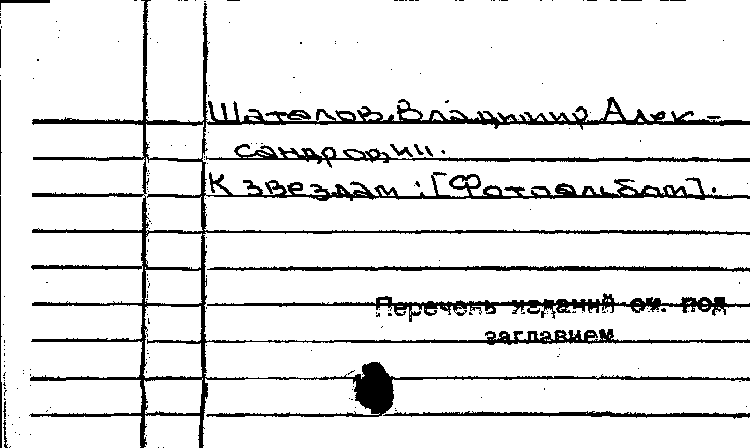 Шаталов, Владимир Алек-
сандрович.
К звездам : [Фотоальбом].
Перечень изданий см. под
заглавием